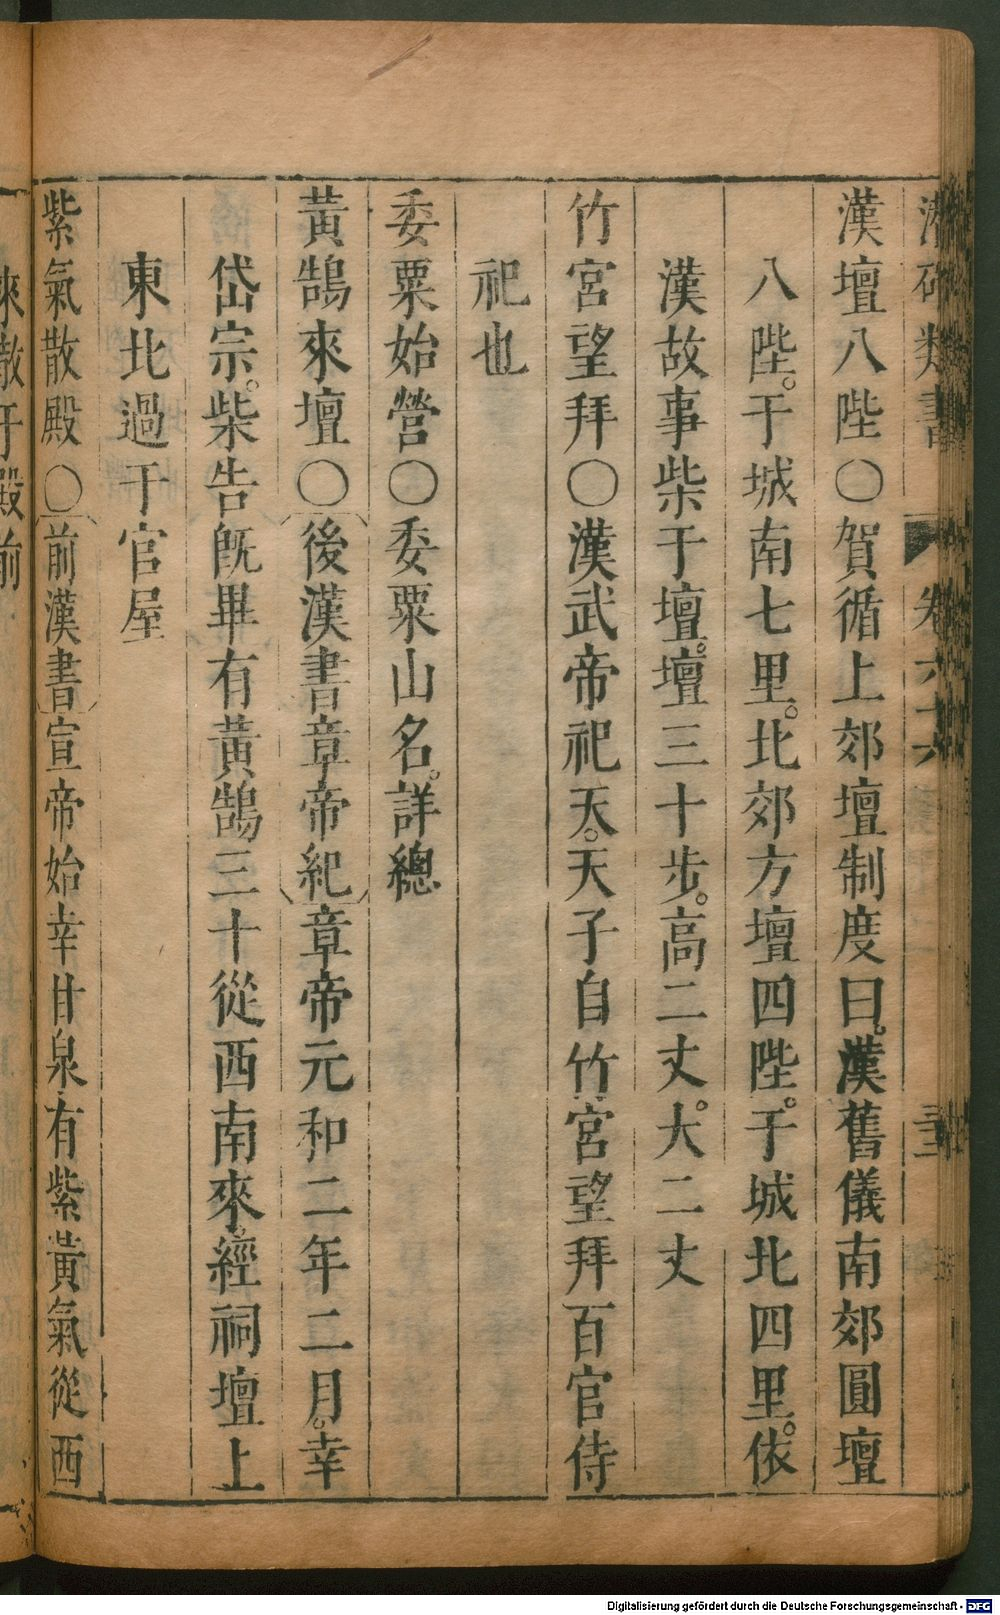 類書 卷六
漢壇八陛○賀循上郊壇制度曰。漢舊儀南郊圓壇
八陛。于城南七里。北郊方壇四陛。于城北四里。依
漢故事柴于壇。壇三十步。高二丈。大二丈
竹宮望拜○漢武帝祀天。天子自竹宮望拜百官侍
祀也
委粟始營○委粟山名。詳總
黃鵠來壇○後漢書章帝紀章帝元和二年二月。幸
岱宗。柴告既畢有黃鵠三十從西南來。經祠壇上
東北過于官屋
紫氣散殿○前漢書宣帝始幸甘泉。有紫黃氣從西
來散于殿前
Digitalisierung gefördert durch die Deutsche Forschungsgemeinschaft - DFG